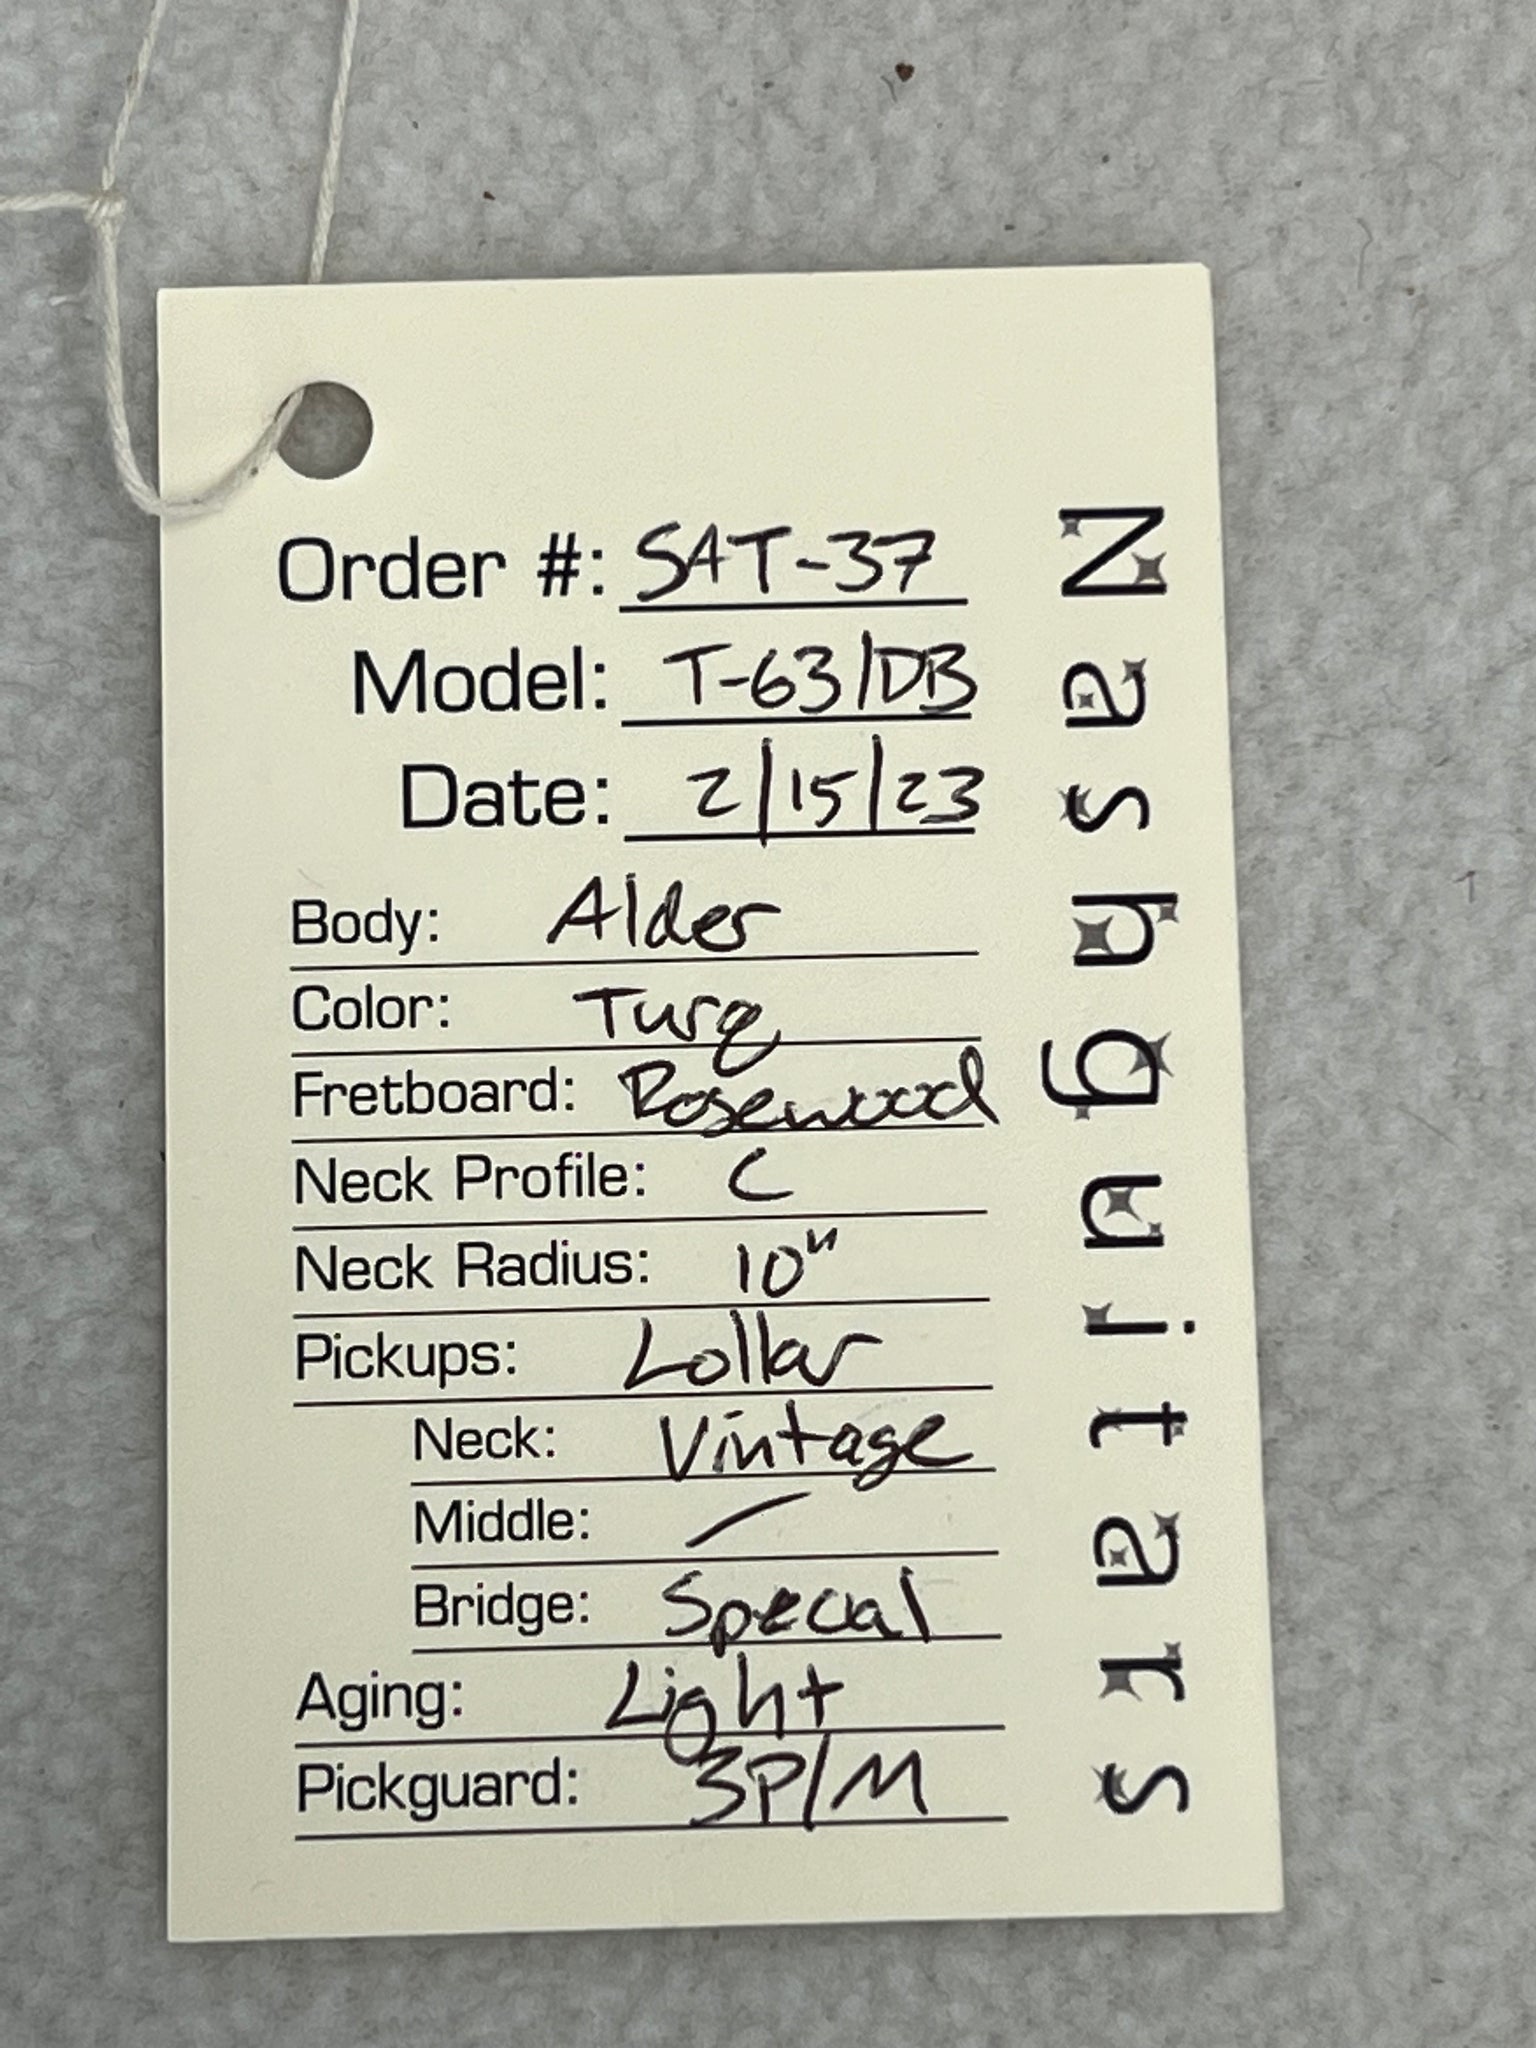 Order #: SAT-37
Model: T-63/DB
Date: 2/15/23
Body: Alder
Color: Turq
Fretboard: Rosewood
Neck Profile: C
Neck Radius: 10"
Pickups: Lollar
Neck: Vintage
Middle: /
Bridge: Special
Aging: Light
Pickguard: 3P/M
Nashguitars